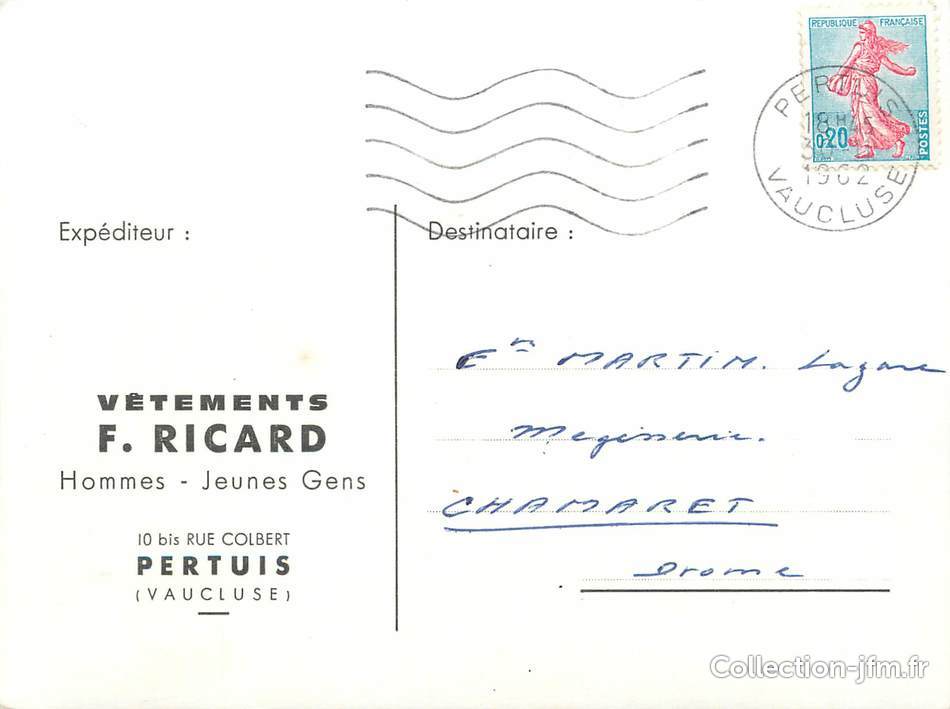 REPUBLIQUE FRANÇAISE
0,20
POSTES
PERTUIS
18 H 45
1962
VAUCLUSE
Expéditeur :
Destinataire :
VÊTEMENTS
F. RICARD
Hommes - Jeunes Gens
10 bis RUE COLBERT
PERTUIS
(VAUCLUSE)
Ets MARTIM. Lazare
Megisserie.
CHAMARET
Drome
Collection-jfm.fr